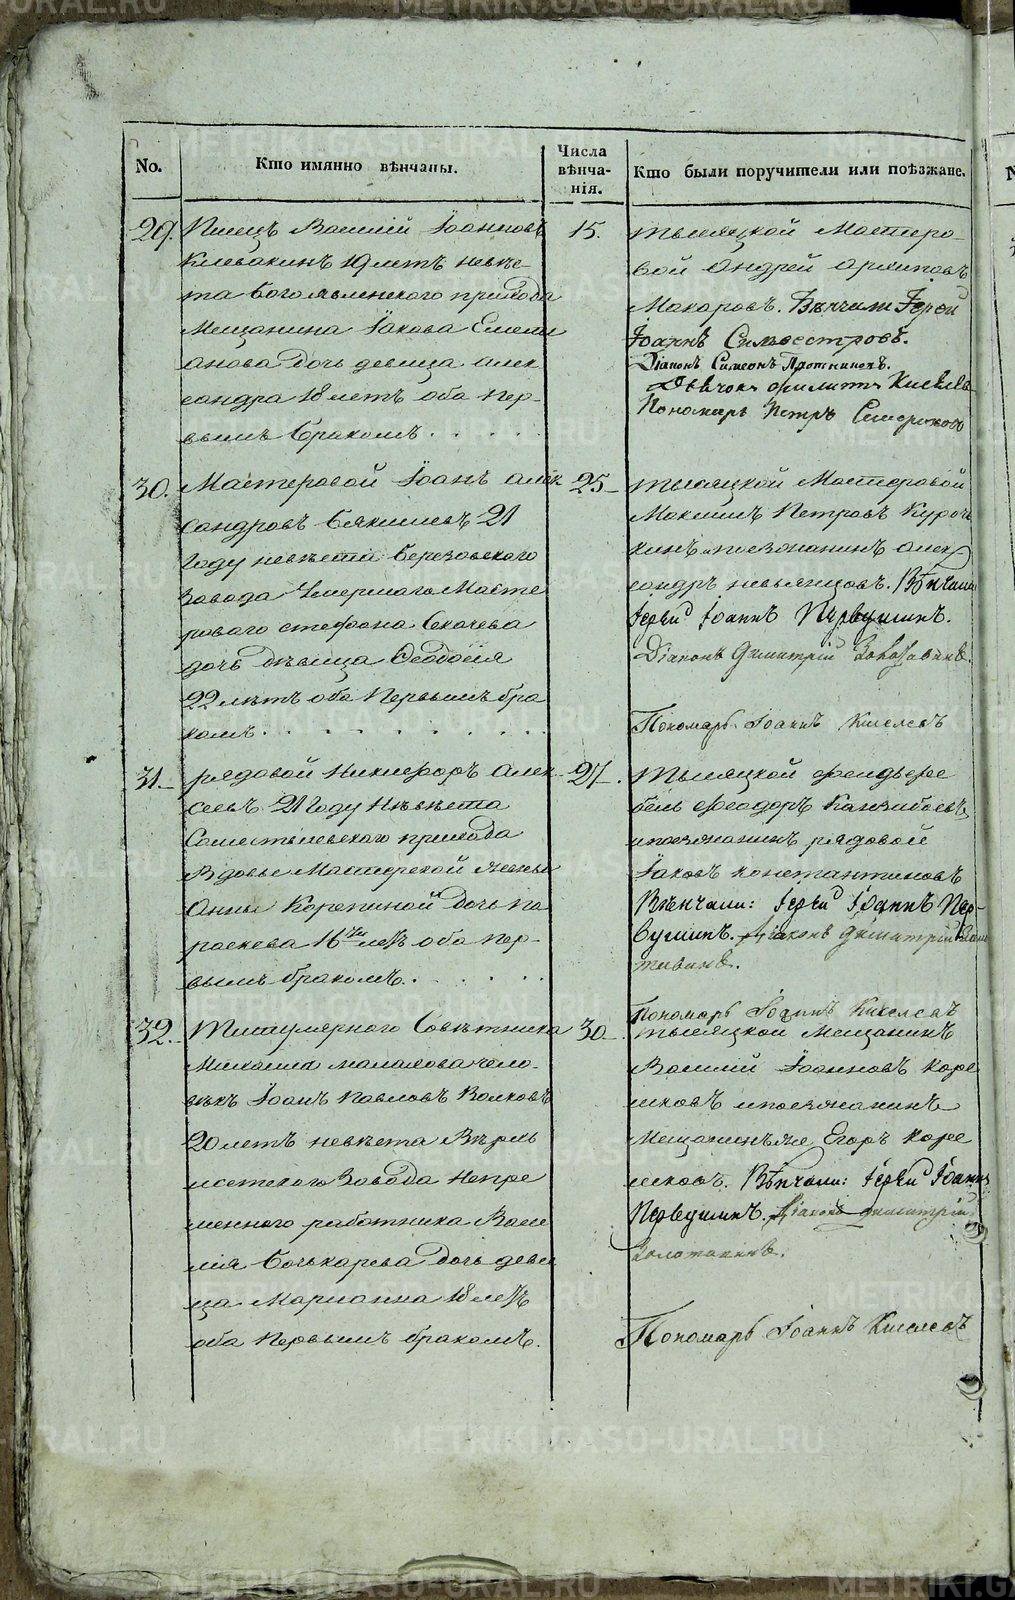 No.
Кто имянно вѣнчаны.
Числа
вѣнча-
нія.
Кто были поручители или поѣзжане.
29.
Писецъ Василій Іоанновъ
Клевакинъ 19 летъ невѣс-
та Богоявленскаго прихода
Мещанина Іакова Емели
анова дочь девица Алек
сандра 18 летъ оба пер-
вымъ бракомъ . . . . .
15.
тысяцкой Мастеро-
вой Андрей Архиповъ
Макаровъ. Вѣнчали Іерей
Іоаннъ Сильвестровъ.
Діаконъ Симеонъ
Дьячокъ Филиппъ Киселевъ
Пономарь Петръ
30.
Мастеровой Іоанъ Алек
сандровъ 21
году невѣста Березовскаго
Завода Умершаго Масте
роваго Стефана Секачева
дочь дѣвица Феодосія
22 лѣтъ оба первымъ бра
комъ . . . . . . . .
25
тысяцкой Мастеровой
Максимъ Петровъ Куроч
кинъ и поезжанинъ Алек
сандръ Невьянцовъ. Вѣнчали
Іерей Іоаннъ Первушинъ.
Діаконъ Димитрій
Пономарь Іоаннъ Киселевъ
31.
рядовой Никифоръ Алек
сеевъ 21 году Невѣста
прихода
Вдовы Мастерской жены
Анны Корепиной дочь Па
раскева 16ти летъ оба пер-
вымъ бракомъ. . . . . .
27.
Тысяцкой фельдфе
бель Феодоръ
и поезжанинъ рядовой
Іаковъ Константиновъ
Вѣнчали: Іерей Іоаннъ Пер-
вушинъ. Діаконъ Димитрій Золо
тавинъ.
Пономарь Іоаннъ Киселевъ
32.
Титулярнаго Советника
Михаила Малахова чело-
вѣкъ Іоанъ Павловъ Волковъ
20 летъ невѣста Вѣрхъ
исетскаго Завода Непре
меннаго работника Васи
лія Бочкарева дочь деви
ца Марианна 18 летъ
оба первымъ бракомъ.
30.
тысяцкой Мещанинъ
Василій Іоанновъ Коре
шковъ и поезжанинъ
Мещанинъ же Егоръ Коре
шковъ. Вѣнчали: Іерей Іоаннъ
Первушинъ. Діаконъ Димитрій
Золотавинъ.
Пономарь Іоаннъ Киселевъ
METRIKI.GASO-URAL.RU